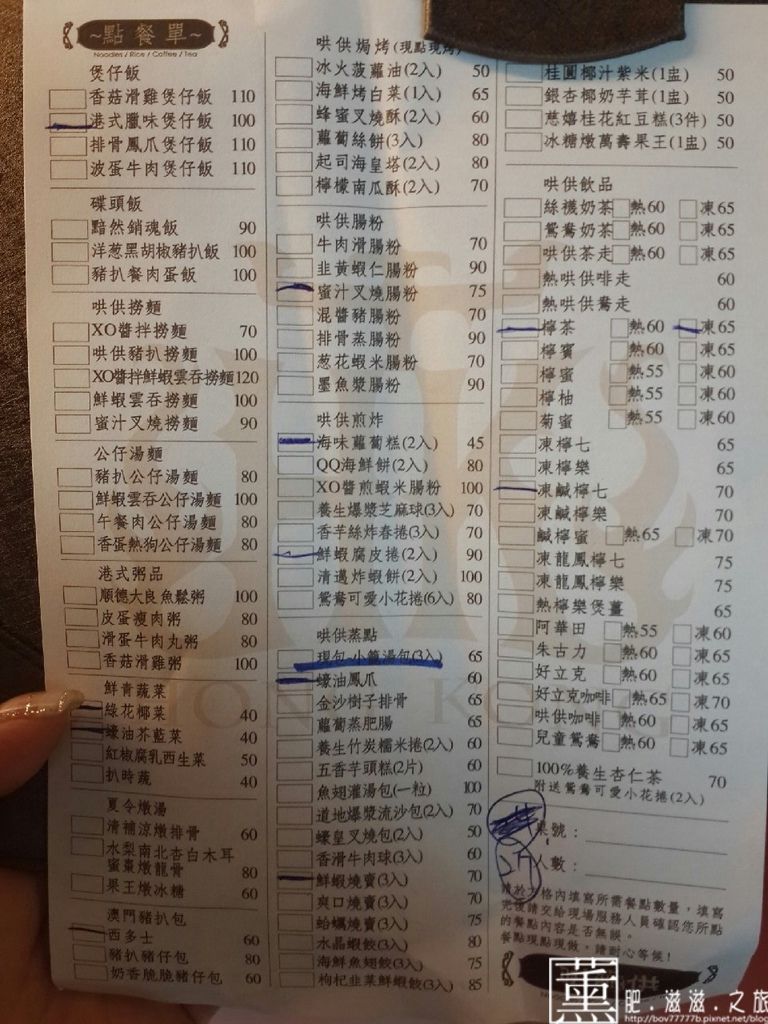 ~點餐單~
Noodles / Rice / Coffee / Tea
煲仔飯
香菇滑雞煲仔飯 110
港式臘味煲仔飯 100
排骨鳳爪煲仔飯 110
波蛋牛肉煲仔飯 110
碟頭飯
黯然銷魂飯 90
洋蔥黑胡椒豬扒飯 100
豬扒餐肉蛋飯 100
哄供撈麵
XO醬拌撈麵 70
哄供豬扒撈麵 100
XO醬拌鮮蝦雲吞撈麵 120
鮮蝦雲吞撈麵 100
蜜汁叉燒撈麵 90
公仔湯麵
豬扒公仔湯麵 80
鮮蝦雲吞公仔湯麵 100
午餐肉公仔湯麵 80
香蛋熱狗公仔湯麵 80
港式粥品
順德大良魚鬆粥 100
皮蛋瘦肉粥 80
滑蛋牛肉丸粥 80
香菇滑雞粥 100
鮮青蔬菜
綠花椰菜 40
蠔油芥藍菜 40
紅椒腐乳西生菜 50
扒時蔬 40
夏令燉湯
清補涼燉排骨 60
水梨南北杏白木耳
蜜棗燉龍骨 80
果王燉冰糖 60
澳門豬扒包
西多士 60
豬扒豬仔包 80
奶香脆脆豬仔包 60
哄供焗烤(現點現烤)
冰火菠蘿油(2入) 50
海鮮烤白菜(1入) 65
蜂蜜叉燒酥(2入) 60
蘿蔔絲餅(3入) 80
起司海皇塔(2入) 80
檸檬南瓜酥(2入) 70
哄供腸粉
牛肉滑腸粉 70
韭黃蝦仁腸粉 90
蜜汁叉燒腸粉 75
混醬豬腸粉 70
排骨蒸腸粉 90
蔥花蝦米腸粉 70
墨魚漿腸粉 90
哄供煎炸
海味蘿蔔糕(2入) 45
QQ海鮮餅(2入) 80
XO醬煎蝦米腸粉 100
養生爆漿芝麻球(3入) 70
香芋絲炸春捲(3入) 70
鮮蝦腐皮捲(2入) 90
清邁炸蝦餅(2入) 100
鴛鴦可愛小花捲(6入) 80
哄供蒸點
現包小籠湯包(3入) 65
蠔油鳳爪 60
金沙樹子排骨 65
蘿蔔蒸肥腸 65
養生竹炭糯米捲(2入) 60
五香芋頭糕(2片) 60
魚翅灌湯包(一粒) 100
道地爆漿流沙包(2入) 70
蠔皇叉燒包(2入) 50
香滑牛肉球(3入) 60
鮮蝦燒賣(3入) 70
爽口燒賣(3入) 70
蛤蠣燒賣(3入) 75
水晶蝦餃(3入) 80
海鮮魚翅餃(3入) 75
枸杞韭菜鮮蝦餃(3入) 85
桂圓椰汁紫米(1盅) 50
銀杏椰奶芋茸(1盅) 50
慈禧桂花紅豆糕(3件) 50
冰糖燉萬壽果王(1盅) 50
哄供飲品
絲襪奶茶 熱60 凍65
鴛鴦奶茶 熱60 凍65
哄供茶走 熱60 凍65
熱哄供啡走 60
熱哄供鴦走 60
檸茶 熱60 凍65
檸賓 熱60 凍65
檸蜜 熱55 凍60
檸柚 熱55 凍60
菊蜜 熱55 凍60
凍檸七 65
凍檸樂 65
凍鹹檸七 70
凍鹹檸樂 70
鹹檸蜜 熱65 凍70
凍龍鳳檸七 75
凍龍鳳檸樂 75
熱檸樂煲薑 65
阿華田 熱55 凍60
朱古力 熱60 凍65
好立克 熱60 凍65
好立克咖啡 熱65 凍70
哄供咖啡 熱60 凍65
兒童鴛鴦 熱60 凍65
100%養生杏仁茶 70
附送鴛鴦可愛小花捲(2入)
桌號：
人數：
請於方格內填寫所需餐點數量，填寫
完後請交給現場服務人員確認您所點
的餐點內容是否無誤。
餐點現點現做，請耐心等候！
薰 肥.滋滋.之旅
http://bov77777b.pixnet.net/blog